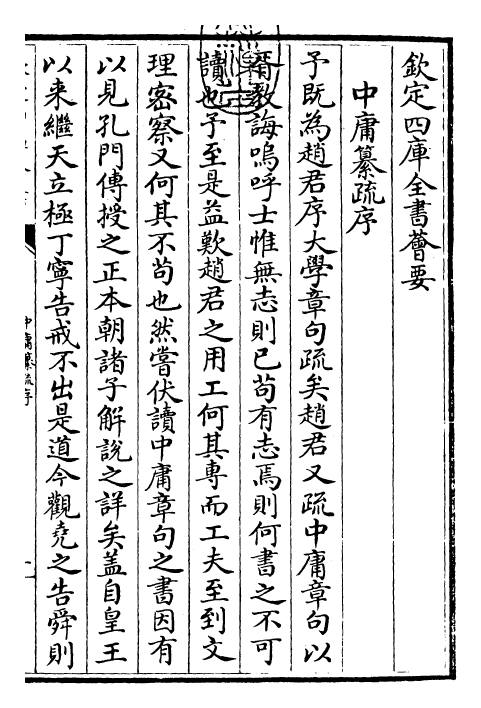 欽定四庫全書薈要
中庸纂疏序
予既為趙君序大學章句疏矣趙君又疏中庸章句以
胥教誨嗚呼士惟無志則已苟有志焉則何書之不可
讀也予至是益歎趙君之用工何其專而工夫至到文
理密察又何其不苟也然嘗伏讀中庸章句之書因有
以見孔門傳授之正本朝諸子解說之詳矣盖自皇王
以来繼天立極丁寧告戒不出是道今觀堯之告舜則
中庸纂疏序